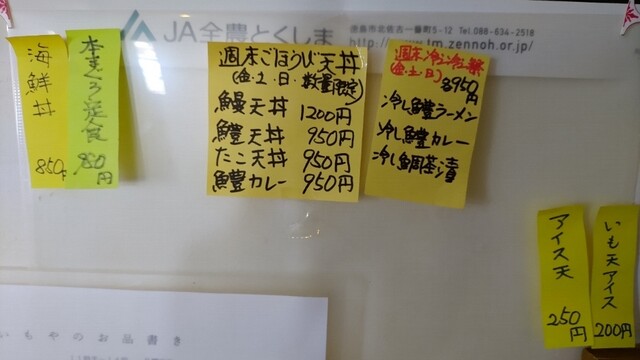 JA全農とくしま
徳島市北佐古一番町5-12 Tel.088-634-2518
http://www.tm.zennoh.or.jp/
海鮮丼
850円
本まぐろ定食
980円
週末ごほうび天丼
(金.土.日.数量限定)
鰻天丼 1200円
鱧天丼 950円
たこ天丼 950円
鱧カレー 950円
週末冷冷祭
(金.土.日)
各950円
冷し鱧ラーメン
冷し鱧カレー
冷し鯛茶漬
アイス天
250円
いも天アイス
200円
いもやのお品書き